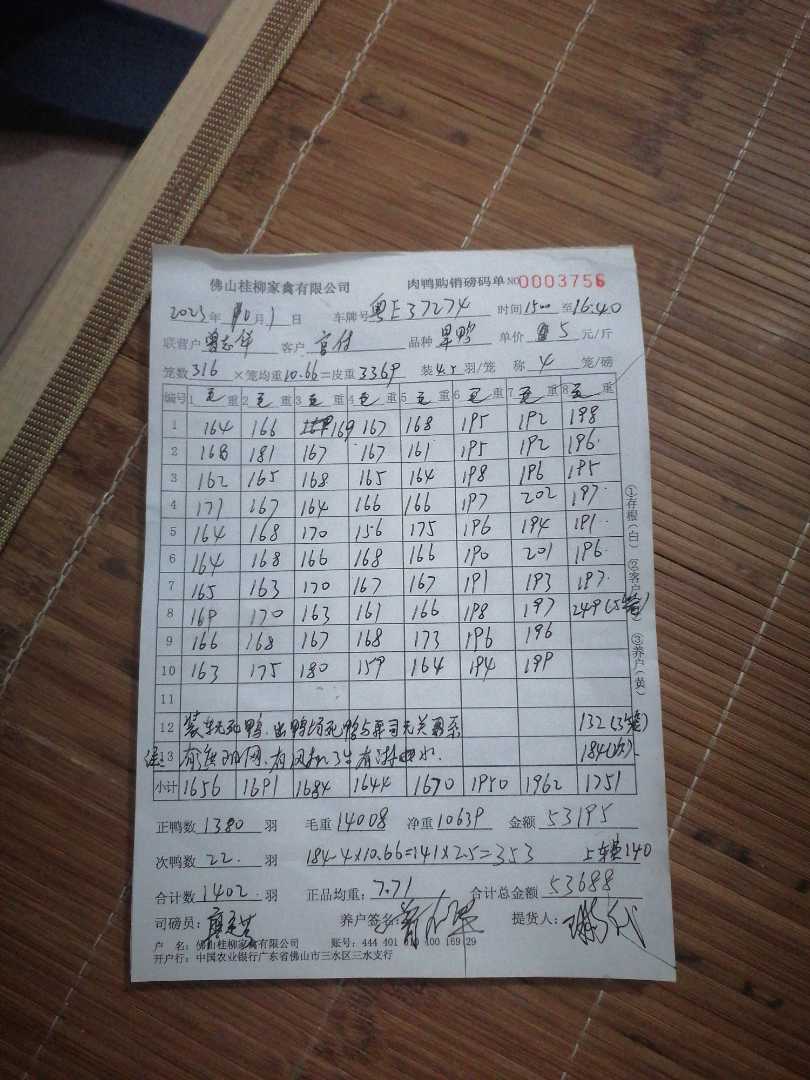 佛山桂柳家禽有限公司 肉鸭购销磅码单 NO 0003756
2023年10月1日 车牌号粤E37274 时间1500至16:40
联营户曾志华 客户 品种 单价5元/斤
笼数316×笼均重10.66=皮重3369 装4.5羽/笼 称4笼/磅
编号 1毛重 2毛重 3毛重 4毛重 5毛重 6毛重 7毛重 8毛重
1 164 166 169 167 168 195 192 198
2 168 181 167 167 161 195 192 196
3 162 165 168 165 164 198 196 195
4 171 167 164 166 166 197 202 197
5 164 168 170 156 175 196 194 191
6 164 168 166 168 166 190 201 196
7 165 163 170 167 167 191 193 197
8 169 170 163 161 166 198 197 249(5笼)
9 166 168 167 168 173 196 196
10 163 175 180 159 164 194 199
11
12 装车无死鸭.出鸭场死鸭与我司无关系 132(3笼)
13 184(次)
小计 1656 1691 1684 1644 1670 1950 1962 1751
正鸭数1380羽 毛重14008 净重10639 金额53195
次鸭数22.羽 184-4×10.66=141×2.5=353 上车费140
合计数1402羽 正品均重:7.71 合计总金额53688
司磅员: 养户签名: 提货人:
户 名: 佛山桂柳家禽有限公司 账号: 444 401 400 169 29
开户行: 中国农业银行广东省佛山市三水区三水支行
①存根(白) ②客户 ③养户(黄)